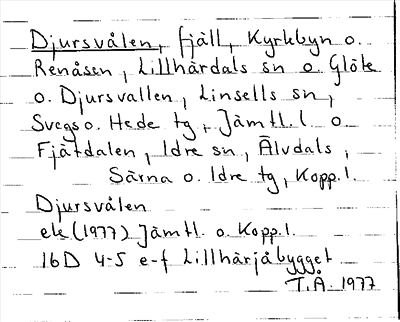 Djursvålen, fjäll, Kyrkbyn o.
Renåsen, Lillhärdals sn o Glöte
o. Djursvallen, Linsells sn,
Svegs o. Hede tg, Jämtl. l. o
Fjätdalen, Idre sn, Älvdals,
Särna o. Idre tg, Kopp.l.
Djursvålen
ek (1977) Jämtl. o. Kopp.l.
16D 4-5 e-f Lillhärjåbygget
T.Å. 1977